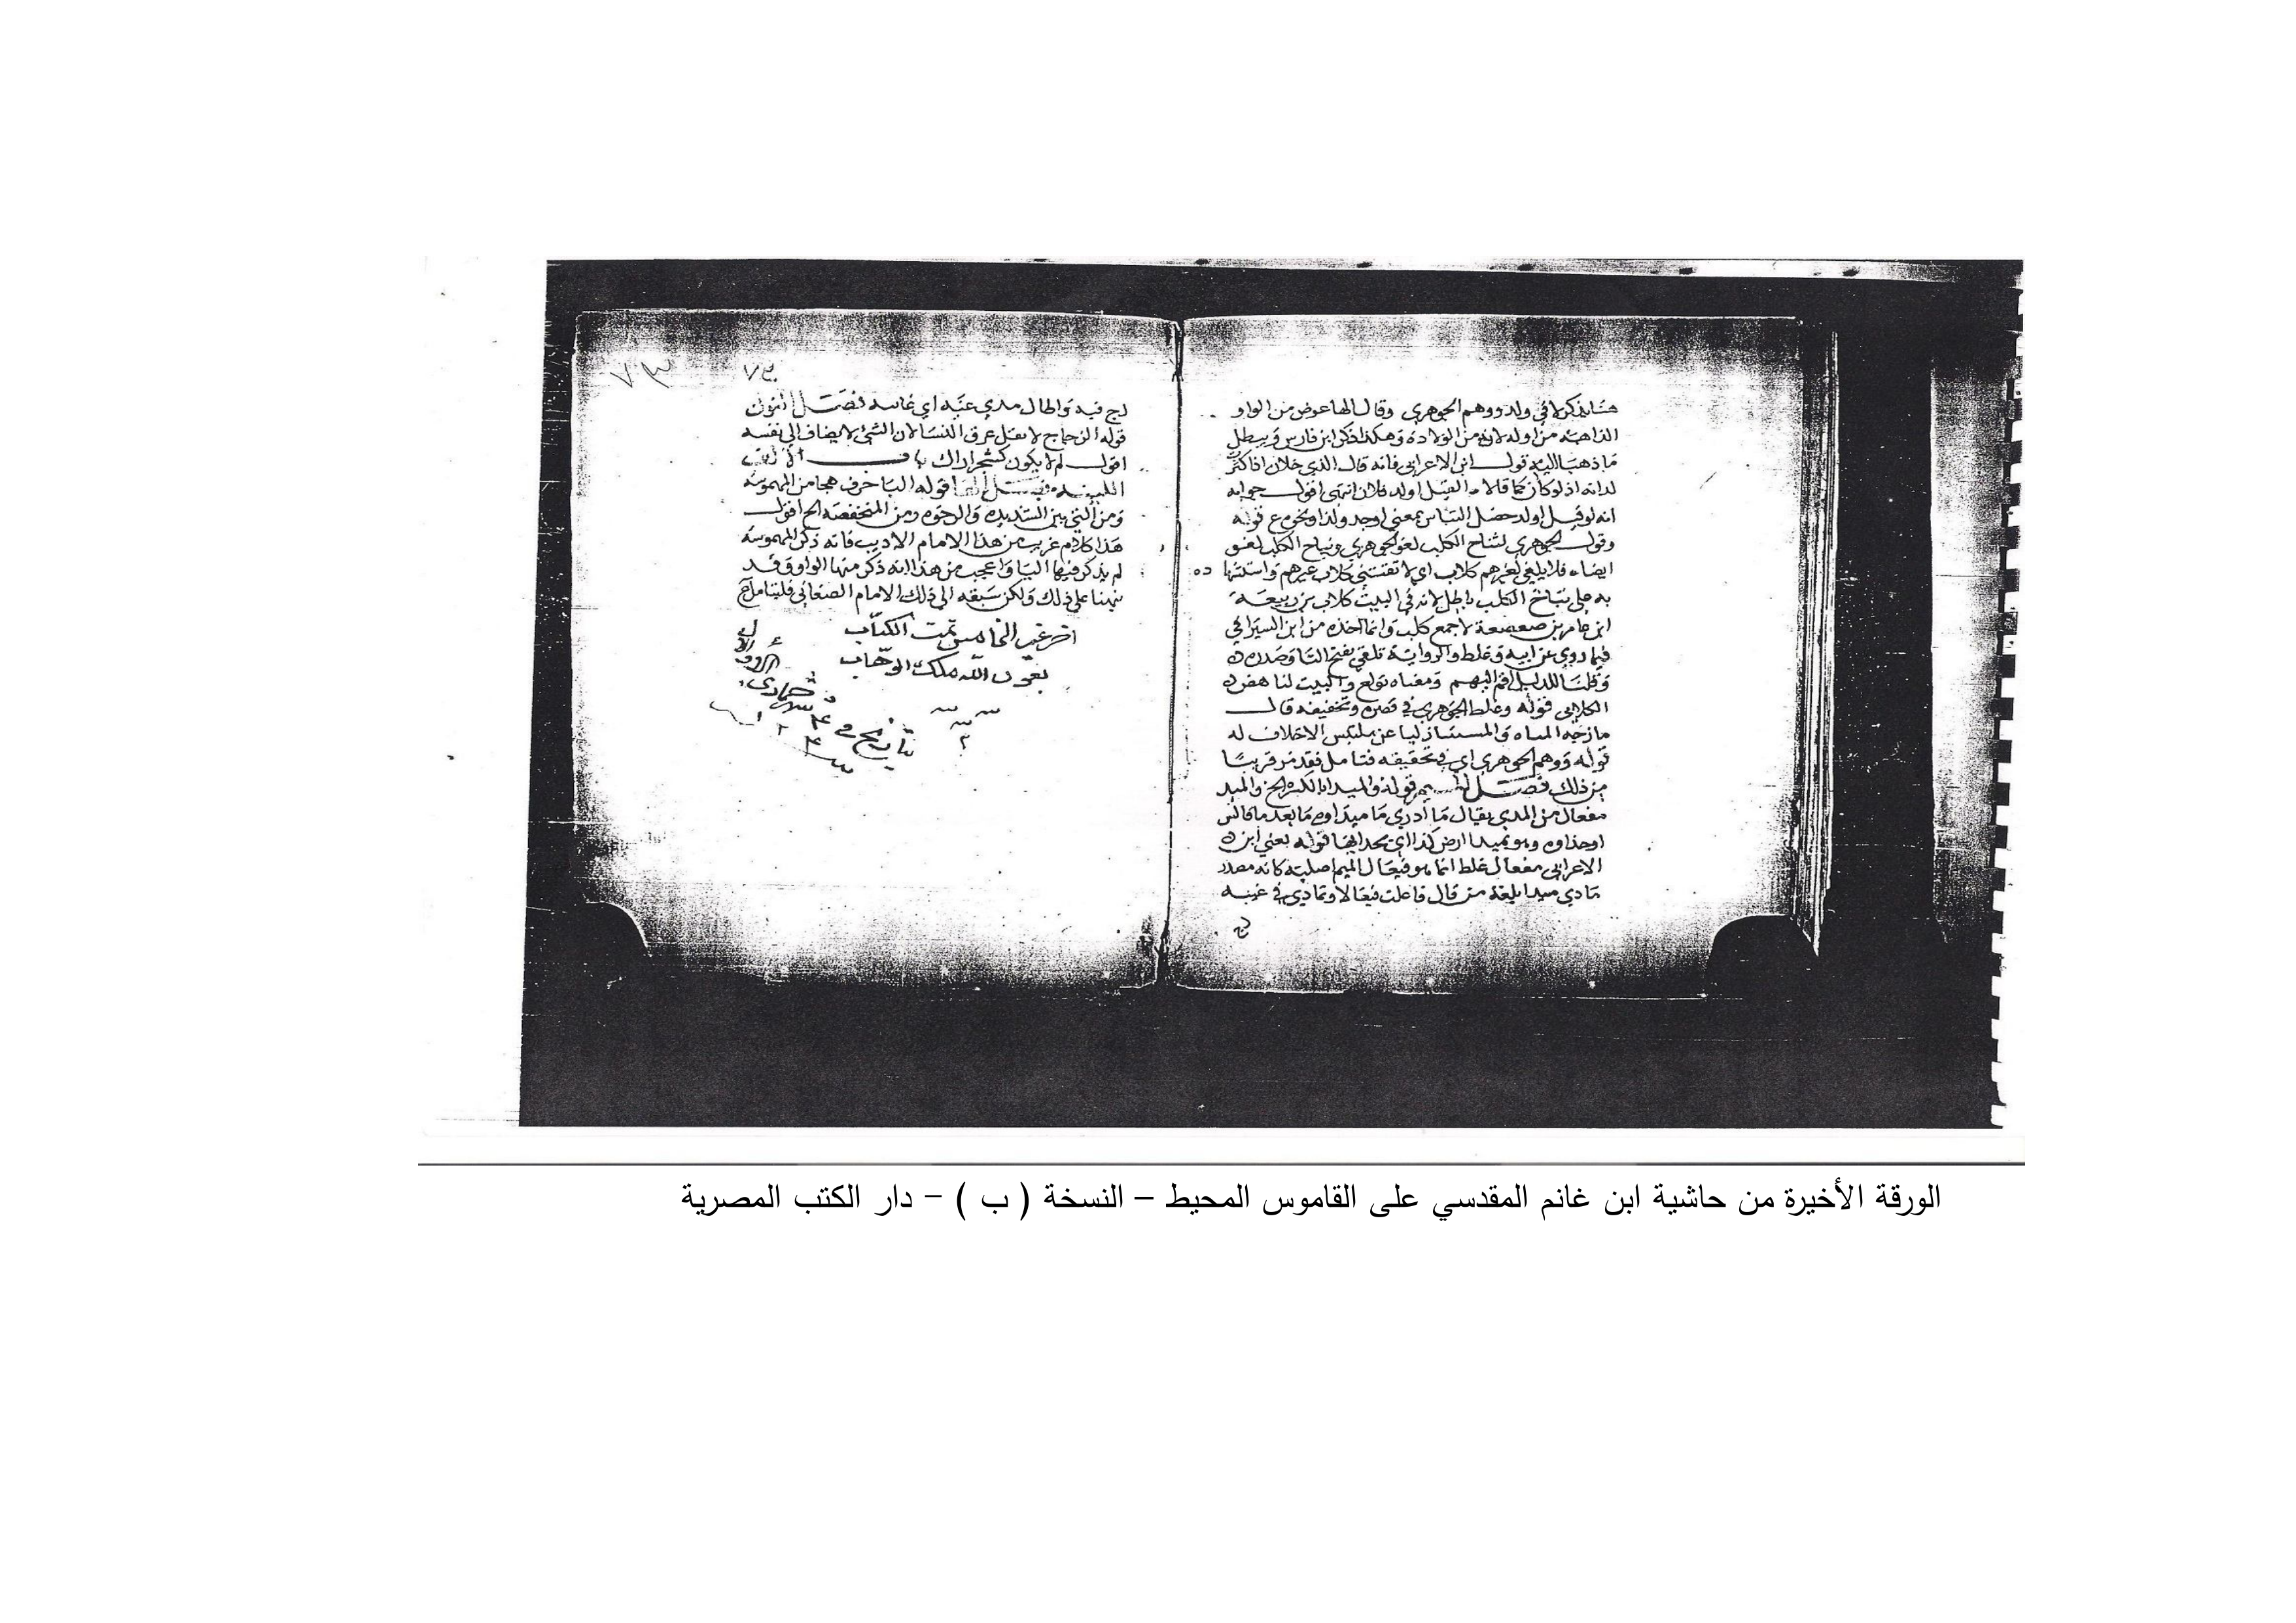 هنا يذكر لا في ولد ووهم الجوهري وقال الهاعوض من الواو
الذاهبة من اوله لانه من الولادة وهكذا ذكر ابن فارس ويبطل
ما ذهبا اليه قول ابن الاعرابي فانه قال الذي خلان اذا كثر
لداته اذ لو كان كما قالا القيل اولد فلان انتهى اقول جوابه
انه لو قيل اولد حصل التباس بمعنى اوجد ولدا ونحوه ع قوله
وقول الجوهري لنباح الكلب لغو الجوهري ونباح الكلب لغو
ايضا فلا يلغى لغيرهم كلاب اي لا تقتني كلاب غيرهم واستشها ده
به على نباح الكلب باطل لانه في البيت كلاب بن ربيعة
ابن عامر بن صعصعة لا جمع كلب وانما اخذه من ابن السيرافي
فيما روى عن ابيه وغلط والرواية تلغى بفتح التا وصدره
وقلنا للدليل اقم اليهم ومعناه تولع والبيت لنا
الكلابي قوله وغلط الجوهري في قصره وتخفيفه قال
ما زجه المياه والمستشا
قوله ووهم الجوهري اي في تخفيفه فتامل فقد مر قريبا
من ذلك فصل الميم قوله والميدا بالكسر الخ والميد
مفعال من المدي يقال ما أدري ما ميداوه ما بعد ما قالس
اوحذاوه وهو بميدا ارض كذا اي بحدايها قوله يعني ابن
الاعرابي مفعال غلط انما هو فيعال الميم اصلية كانه مصدر
مادي ميدا بلغة من قال فاعلت فيعالا وتمادي في غيه
لج
٧٣
لج فيه واطال مدي غيه اي غايته فصل النون
قوله الزجاج لا يقل عرق النسا لان الشئ لا يضاف الى نفسه
اقول لم لا يكون كشجر اراك باب الالف
اللينه فصل اليا قوله اليا حرف هجا من المهموسة
ومن التي بين الشديده والرخوه ومن المنخفضه الخ اقول
هذا كلام غريب من هذا الامام الاديب فانه ذكر المهموسه
لم يذكر فيها اليا واعجب من هذا انه ذكر منها الواو وقد
نبهنا على ذلك ولكن سبقه الى ذلك الامام الصغاني فليتامل
تمت الكتاب
بعون الله ملك الوهاب
تاريخ في
الورقة الأخيرة من حاشية ابن غانم المقدسي على القاموس المحيط – النسخة ( ب ) – دار الكتب المصرية